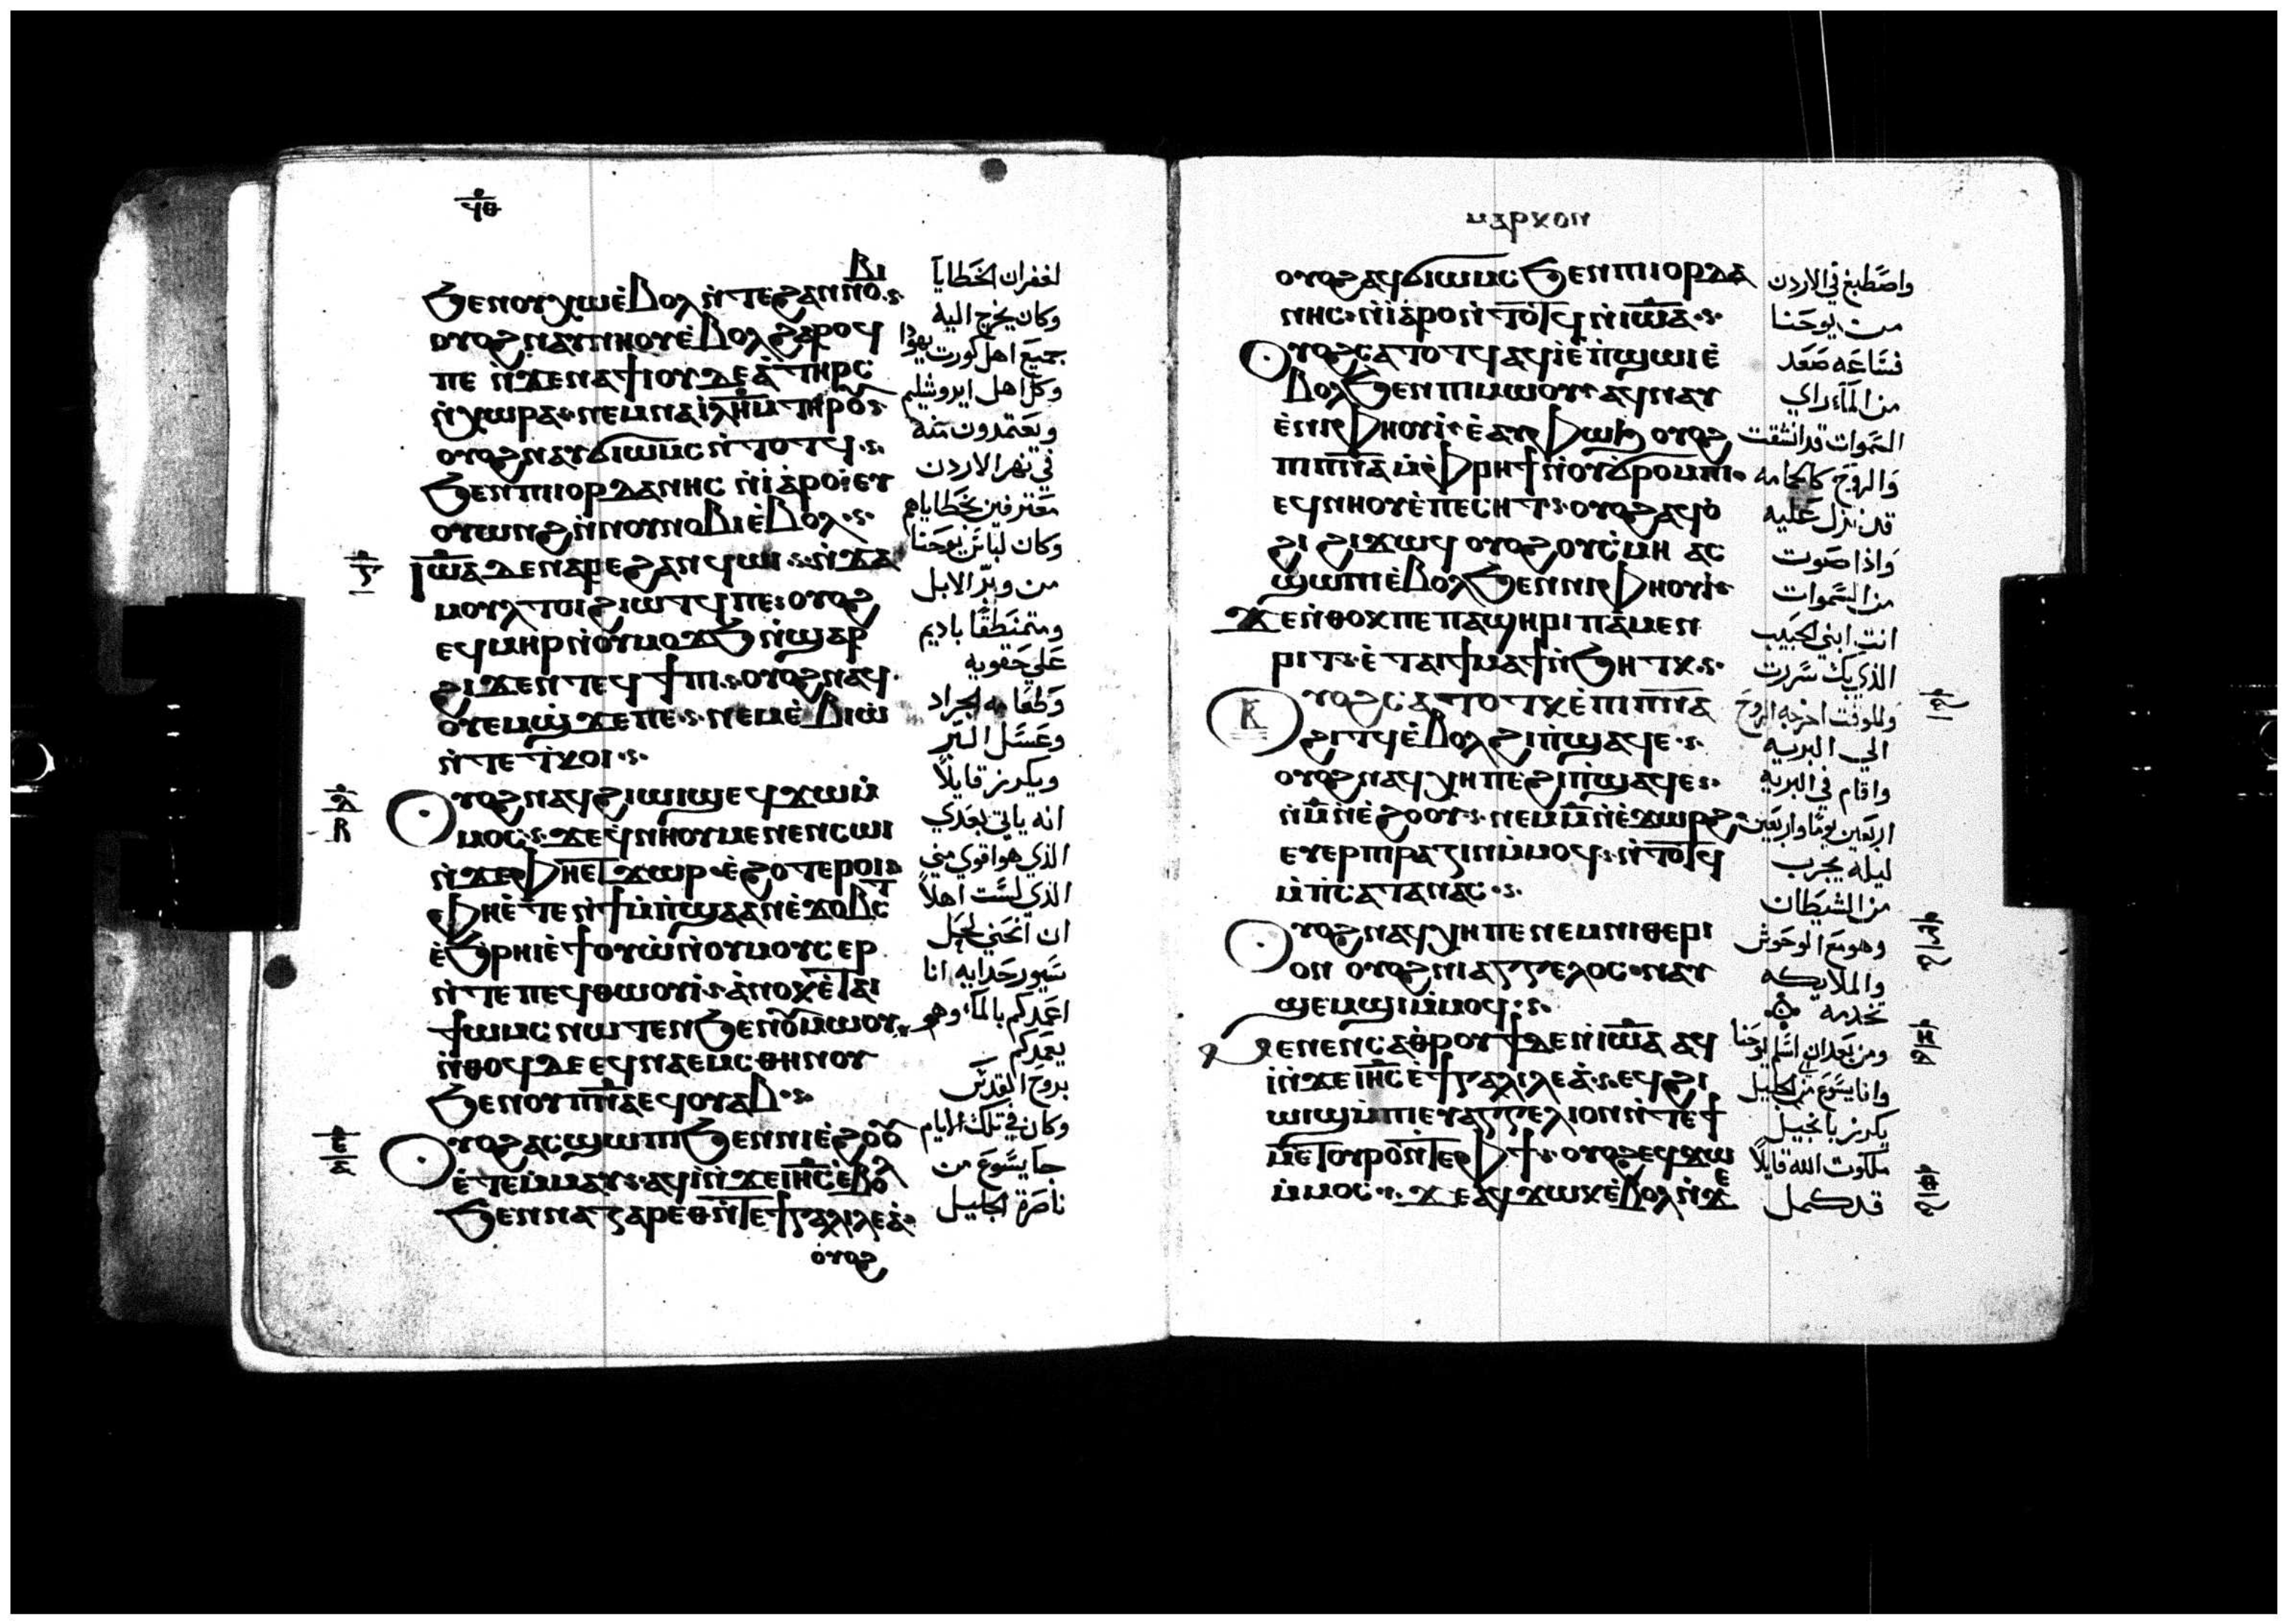 ϥⲑ
ϧⲉⲛⲟⲩⲭⲱⲉ̀ⲃⲟⲗ ⲛ̀ⲧⲉϩⲁⲛⲛⲟ
ⲃⲓ
ⲟⲩⲟϩⲛⲁⲩⲛⲏⲟⲩⲉ̀ⲃⲟⲗϩⲁⲣⲟϥ
ⲡⲉ ⲛ̀ϫⲉⲛⲁϯⲓⲟⲩⲇⲉⲁ̀ⲧⲏⲣⲥ
ⲛ̀ⲭⲱⲣⲁ ⲛⲉⲙⲛⲁⲓⲗ̅ⲏ̅ⲙ̅ⲧⲏⲣⲟⲩ
ⲟⲩⲟϩⲛⲁⲩϭⲓⲱⲙⲥⲛ̀ⲧⲟⲧϥ
ϧⲉⲛⲡⲓⲓⲟⲣⲇⲁⲛⲏⲥ ⲛ̀ⲓⲁ̀ⲣⲟ ⲉⲩ
ⲟⲩⲱⲛϩⲛ̀ⲛⲟⲩⲛⲟⲃⲓⲉ̀ⲃⲟⲗ
ⲓⲱ̅ⲁ̅ ⲇⲉⲛⲁⲣⲉϩⲁⲛϥⲱⲓ ⲛ̀ϭⲁ
ⲙⲟⲩⲗⲧⲟⲓϩⲓⲱⲧϥⲡⲉ ⲟⲩⲟϩ
ⲉϥⲙⲏⲣⲛ̀ⲟⲩⲙⲟϫϧⲛ̀ϣⲁⲣ
ϩⲓϫⲉⲛⲧⲉϥϯⲡⲓ ⲟⲩⲟϩⲛⲁϥ
ⲟⲩⲉⲙϣϫⲉⲡⲉ ⲛⲉⲙⲉ̀ⲃⲓⲱ̀
ⲛ̀ⲧⲉⲧⲕⲟⲓ
ⲟⲩⲟϩⲛⲁϥϩⲓⲱⲓϣⲉϥϫⲱⲙ̀
ⲙⲟⲥ ϫⲉϥ̀ⲛⲏⲟⲩⲙⲉⲛⲉⲛⲥⲱⲓ
ⲛ̀ϫⲉⲫⲏⲉⲧϫⲱⲣ ⲉ̀ϩⲟⲧⲉⲣⲟⲓ
ⲫⲏⲉ̀ⲧⲉⲛ̀ϯⲙ̀ⲡ̀ϣⲁⲁⲛⲉ̀ⲕⲟⲃⲧ
ⲉ̀ϧⲣⲏⲓⲉ̀ϯⲟⲩⲱ̀ⲛ̀ⲟⲩⲙⲟⲩⲥⲉⲣ
ⲛ̀ⲧⲉⲡⲉϥⲑⲱⲟⲩⲓ̀ ⲁ̀ⲛⲟⲕⲉ̀ⲧⲁⲓ
ϯⲱⲙⲥⲛⲱⲧⲉⲛϧⲉⲛⲟⲩⲙⲱⲟⲩ
ⲛ̀ⲑⲟϥⲇⲉⲉϥⲛⲁⲉⲙⲥⲑⲏⲛⲟⲩ
ϧⲉⲛⲟⲩⲡ̅ⲛ̅ⲁ̅ⲉϥⲟⲩⲁⲃ
ⲟⲩⲟϩⲁⲥϣⲱⲡⲓϧⲉⲛⲛⲓⲉ̀ϩⲟⲟⲩ
ⲉ̀ⲧⲉⲙⲙⲁⲩ ⲁϥⲓ̀ⲛ̀ϫⲉⲓⲏ̅ⲥ̅ⲉ̀ⲃⲟⲗ
ϧⲉⲛⲛⲁⲍⲁⲣⲉⲑⲛ̀ⲧⲉϯⲅⲁⲗⲓⲗⲉⲁ̀
ⲟⲩⲟϩ
لغفران الخطايا
وكان يخرج اليه
جميع اهل كورت يهودا
وكل اهل ايروشليم
ويعتمدون منه
في نهر الاردن
معترفين بخطاياهم
وكان لباس يوحنا
من وبر الابل
ومتمنطقًا باديم
علي حقويه
وطعامه الجراد
وعسل البر
ويكرز قايلاً
انه ياتي بعدي
الذي هو اقوي مني
الذي لست اهلاً
ان انحني لحل
سيور حدايه انا
اعمدكم بالماء وهو
يعمدكم
بروح القدس
وكان في تلك الايام
جا يسوع من
ناصرة الجليل
ⲙⲁⲣⲕⲟⲛ
ⲟⲩⲟϩⲁϥϭⲓⲱⲙⲥϧⲉⲛⲡⲓⲓⲟⲣⲇⲁ
ⲛⲏⲥ ⲛ̀ⲓⲁ̀ⲣⲟⲛ̀ⲧⲟⲧϥⲛ̀ⲓⲱ̅ⲁ̅
ⲟⲩⲟϩⲥⲁⲧⲟⲧϥⲁϥⲓ̀ⲉ̀ⲡ̀ϣⲱⲓⲉ̀
ⲃⲟⲗϧⲉⲛⲡⲓⲙⲱⲟⲩ ⲁϥⲛⲁⲩ
ⲉ̀ⲛⲓⲫⲏⲟⲩⲓ̀ ⲉ̀ⲁⲩⲫⲱϧ ⲟⲩⲟϩ
ⲡⲓⲡ̅ⲛ̅ⲁ̅ ⲙ̀ⲫⲣⲏϯⲛ̀ⲟⲩϭⲣⲟⲙⲡⲓ
ⲉϥⲛⲏⲟⲩⲉ̀ⲡⲉⲥⲏⲧ ⲟⲩⲟϩⲁϥⲟ̀
ϩⲓ ϩⲓϫⲱϥ ⲟⲩⲟϩⲟⲩⲥ̀ⲙⲏ ⲁⲥ
ϣⲱⲡⲓⲉ̀ⲃⲟⲗϧⲉⲛⲛⲓⲫⲏⲟⲩⲓ̀
ϫⲉⲛ̀ⲑⲟⲕⲡⲉⲡⲁϣⲏⲣⲓⲡⲁⲙⲉⲛ
ⲣⲓⲧ ⲉ̀ⲧⲁⲓϯⲙⲁϯⲛ̀ϧⲏⲧⲕ
ⲟⲩⲟϩⲥⲁⲧⲟⲧⲕⲉ̀ⲡⲓⲡ̅ⲛ̅ⲁ̅
ϩⲓⲧϥⲉ̀ⲃⲟⲗϩⲓⲡ̀ϣⲁϥⲉ
ⲟⲩⲟϩⲛⲁϥⲭⲏⲡⲉϩⲓⲡ̀ϣⲁϥⲉ
ⲛ̀ⲙ̅ⲛ̀ⲉ̀ϩⲟⲟⲩ ⲛⲉⲙⲙ̅ⲛ̀ⲉ̀ϫⲱⲣϩ
ⲉⲩⲉⲣⲡⲓⲣⲁⲍⲓⲛⲙ̀ⲙⲟϥ ⲛ̀ⲧⲟⲧϥ
ⲙ̀ⲡ̀ⲥⲁⲧⲁⲛⲁⲥ
ⲟⲩⲟϩⲛⲁϥⲭⲏⲡⲉⲛⲉⲙⲛⲓⲑⲉⲣⲓ
ⲟⲛ ⲟⲩⲟϩⲛⲓⲁⲅⲅⲉⲗⲟⲥ ⲛⲁⲩ
ϣⲉⲙϣⲓⲙ̀ⲙⲟϥ
ⲙⲉⲛⲉⲛⲥⲁⲑⲣⲟⲩϯⲇⲉⲛ̀ⲓⲱ̅ⲁ̅ ⲁϥ
ⲓ̀ⲛ̀ϫⲉⲓⲏ̅ⲥ̅ⲉ̀ϯⲅⲁⲗⲓⲗⲉⲁ̀ ⲉϥϩⲓ
ⲱⲓϣⲙ̀ⲡⲓⲉⲩⲁⲅⲅⲉⲗⲓⲟⲛⲛ̀ⲧⲉϯ
ⲙⲉⲧⲟⲩⲣⲟⲛ̀ⲧⲉⲫϯ ⲟⲩⲟϩⲉϥϫⲱ
ⲙ̀ⲙⲟⲥ ϫⲉⲁϥϫⲱⲕⲉ̀ⲃⲟⲗⲛ̀ϫⲉ
واصطبغ في الاردن
من يوحنا
فساعه صعد
من الماء راي
السموات قد انشقت
والروح كالحمامه
قد نزل عليه
واذا صوت
من السموات
انت ابني الحبيب
الذي بك سررت
وللوقت اخرجه الروح
الي البريه
واقام في البريه
اربعين يومًا واربعين
ليله يجرب
من الشيطان
وهو مع الوحوش
والملايكه
تخدمه
ومن بعد ان اسلم يوحنا
يكرز بانجيل
ملكوت الله قايلاً
قد كمل